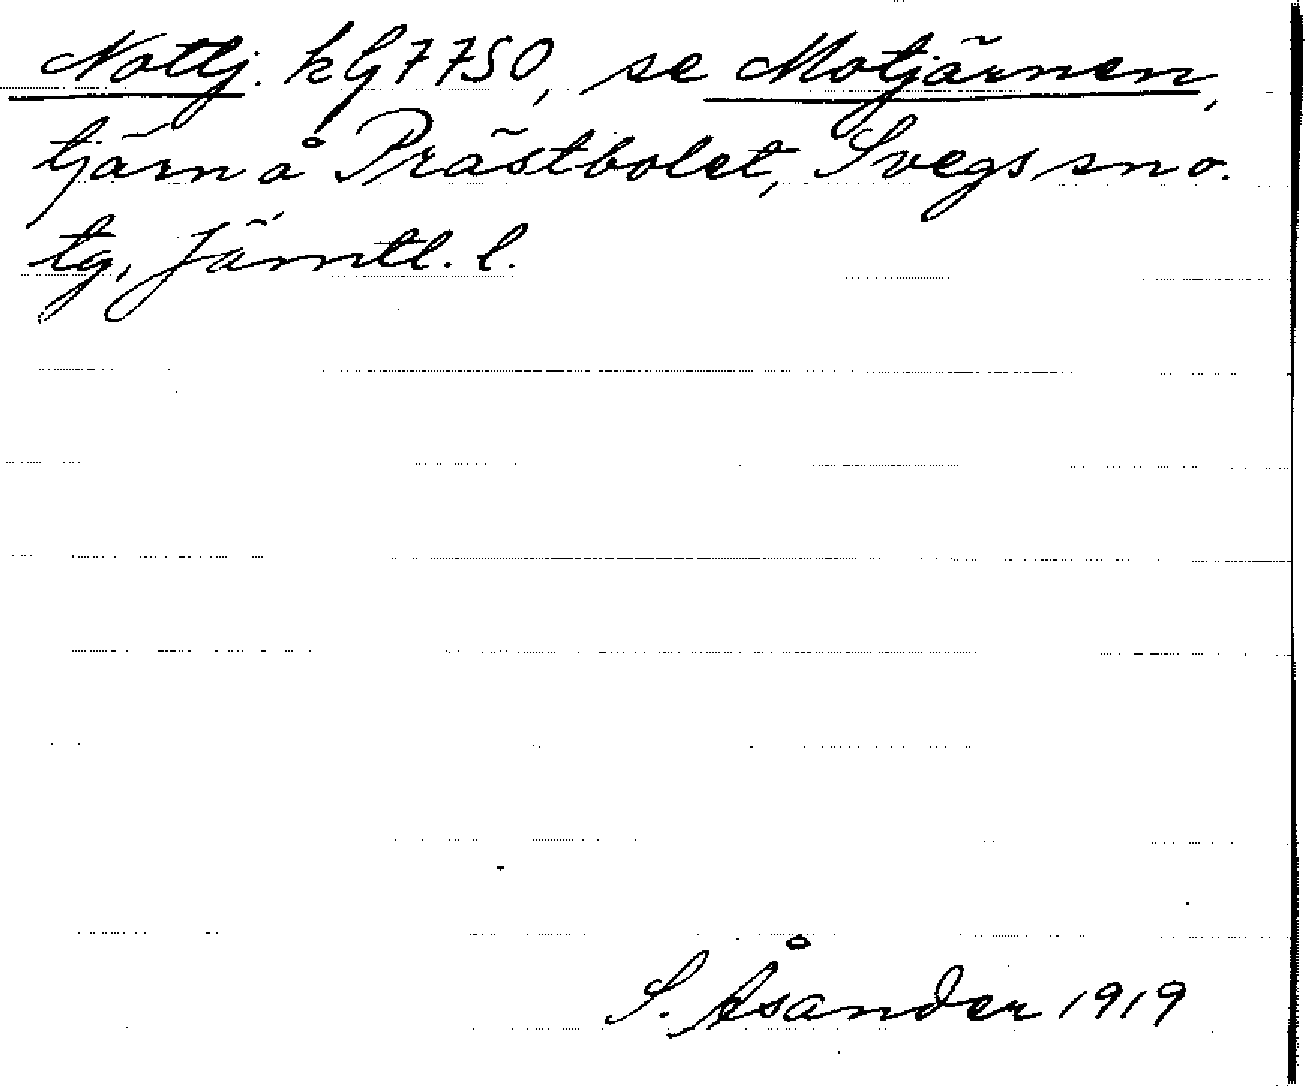 Nottj. kG 7750, se Motjärnen,
tjärn å Prästbolet, Svegs sn o.
tg, Jämtl. l.
S. Åsander 1919